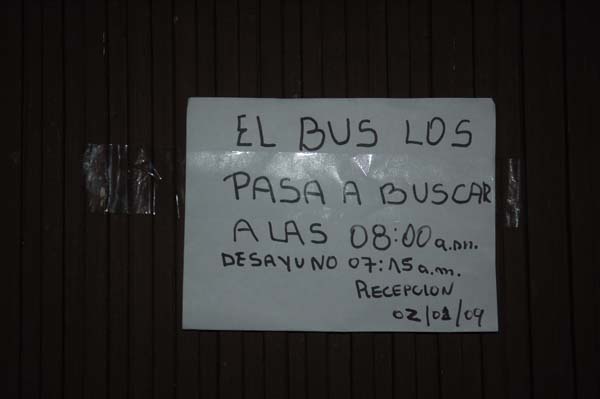 EL BUS LOS
PASA A BUSCAR
A LAS 08:00 a.m.
DESAYUNO 07:15 a.m.
RECEPCION
02/01/09